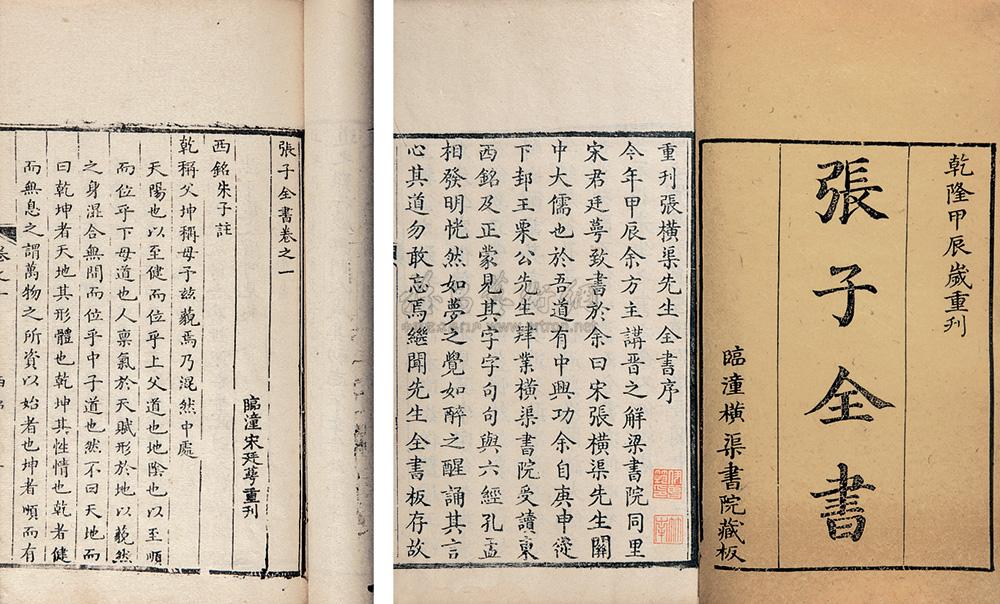 乾隆甲辰歲重刊
張子全書
臨潼橫渠書院藏板
重刊張橫渠先生全書序
今年甲辰余方主講晉之解梁書院同里
宋君廷蕚致書於余曰宋張橫渠先生關
中大儒也於吾道有中興功余自庚申從
下邽王栗公先生肄業橫渠書院受讀東
西銘及正蒙見其字字句句與六經孔孟
相發明恍然如夢之覺如醉之醒誦其言
心其道勿敢忘焉繼聞先生全書板存故
張子全書卷之一
臨潼宋廷蕚重刊
西銘朱子註
乾稱父坤稱母子玆藐焉乃混然中處
天陽也以至健而位乎上父道也地陰也以至順
而位乎下母道也人禀氣於天賦形於地以藐然
之身混合無間而位乎中子道也然不曰天地而
曰乾坤者天地其形體也乾坤其性情也乾者健
而無息之謂萬物之所資以始者也坤者順而有
卷之一